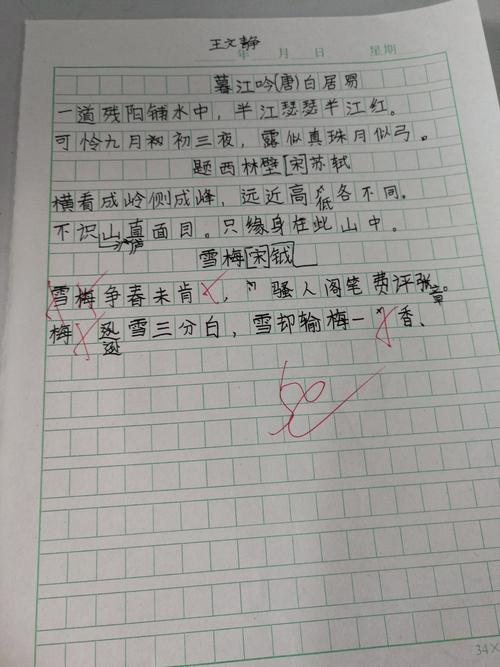 王文静
年 月 日 星期
暮江吟(唐)白居易
一道残阳铺水中,半江瑟瑟半江红。
可怜九月初三夜,露似真珠月似弓。
题西林壁[宋苏轼
横看成岭侧成峰,远近高低各不同。
不识庐山真面目。只缘身在此山中。
雪梅[宋钺]
雪梅争春未肯,骚人阁笔费评章。
梅逊雪三分白,雪却输梅一香、
50
34